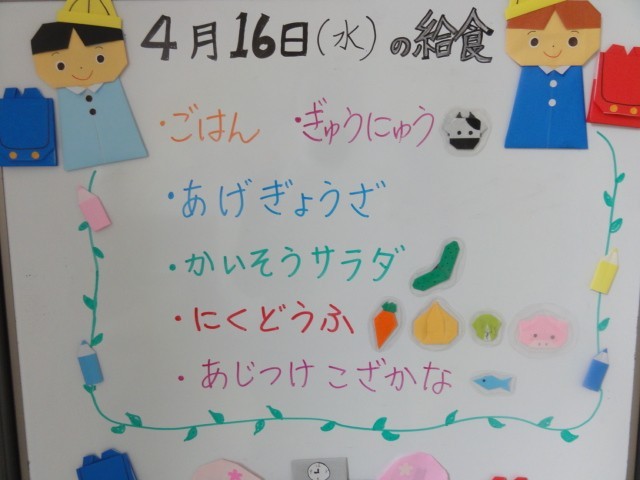 4月16日(水)の給食
・ごはん ・ぎゅうにゅう
・あげぎょうざ
・かいそうサラダ
・にくどうふ
・あじつけこざかな